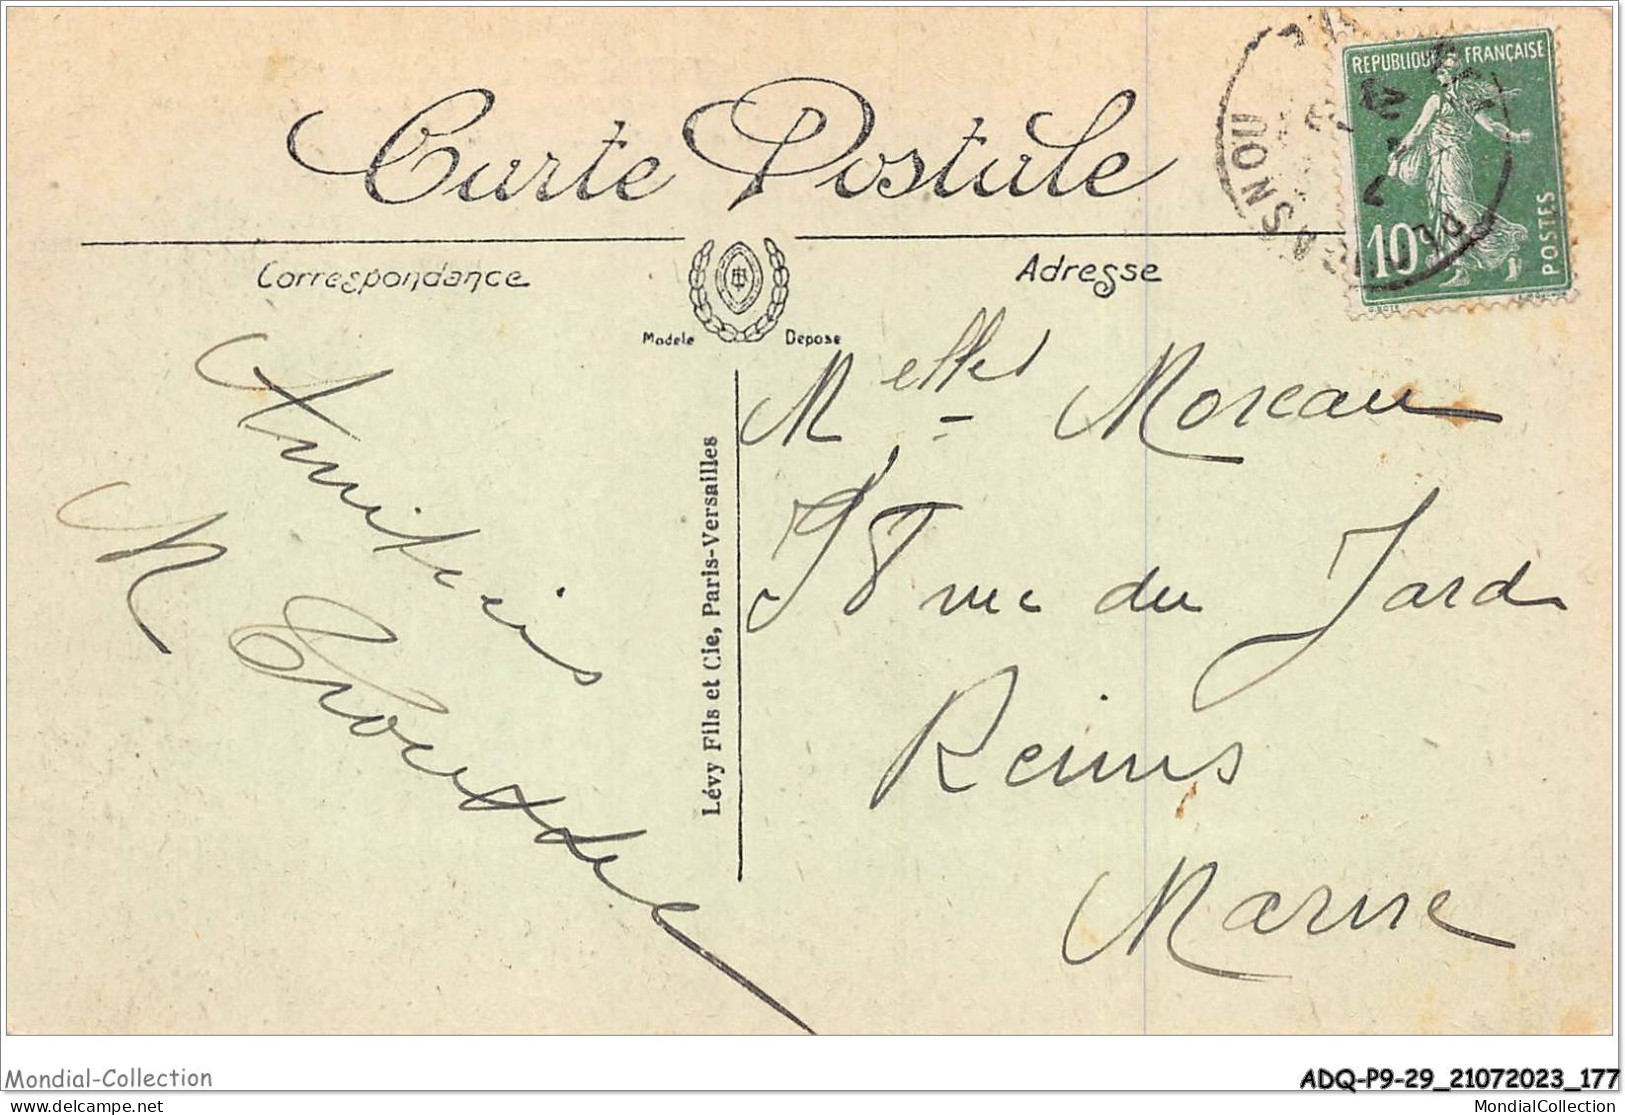 Carte Postale
RÉPUBLIQUE FRANÇAISE
10c
POSTES
Correspondance
Adresse
Modele Depose
Lévy Fils et Cie, Paris-Versailles
Amitiés
M
Melles Moreau
rue du Jard
Reims
Marne
Mondial-Collection
ADQ-P9-29_21072023_177
delcampe.net
MondialCollection